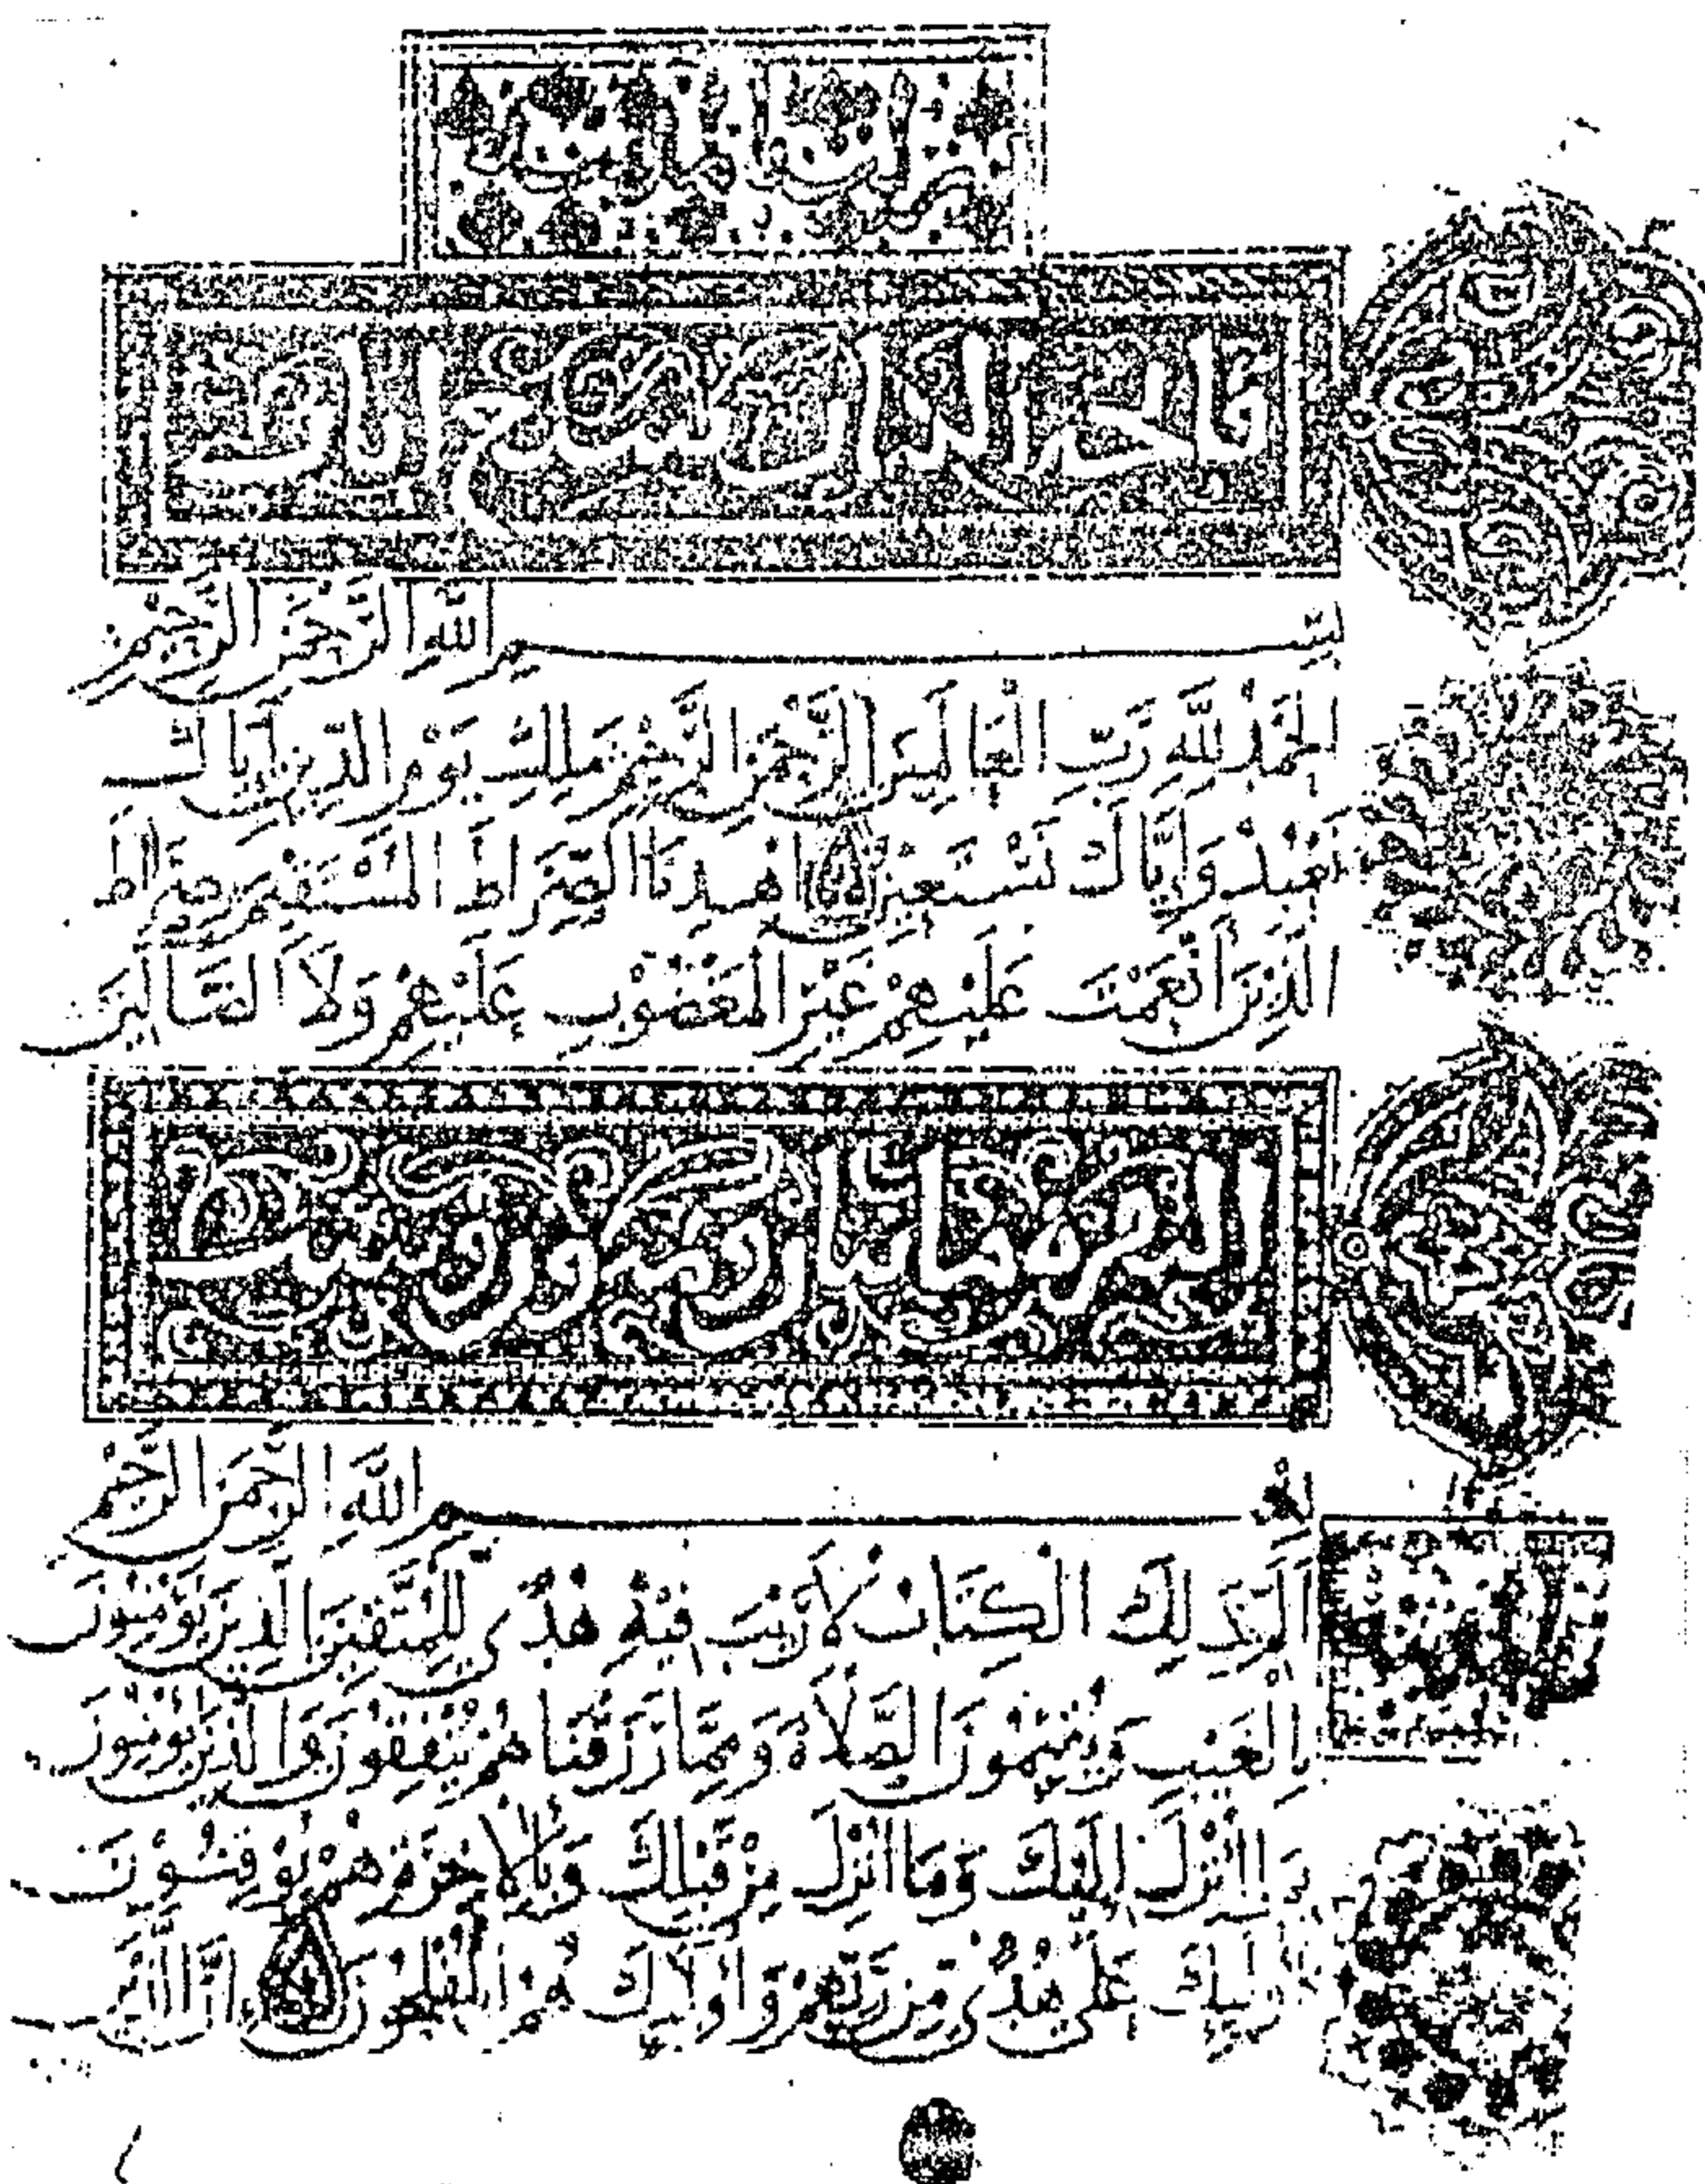 فاتحة الكتاب سبع ايات
بسم الله الرحمن الرحيم
الْحَمْدُ لِلَّهِ رَبِّ الْعَالَمِينَ الرَّحْمَنِ الرَّحِيمِ مَلِكِ يَوْمِ الدِّينِ إِيَّاكَ
نَعْبُدُ وَإِيَّاكَ نَسْتَعِينُ اهْدِنَا الصِّرَاطَ الْمُسْتَقِيمَ صِرَاطَ
الَّذِينَ أَنْعَمْتَ عَلَيْهِمْ غَيْرِ الْمَغْضُوبِ عَلَيْهِمْ وَلَا الضَّالِّينَ
البقره مايتان
بسم الله الرحمن الرحيم
الم ذَلِكَ الْكِتَابُ لَا رَيْبَ فِيهِ هُدًى لِلْمُتَّقِينَ الَّذِينَ يُؤْمِنُونَ
بِالْغَيْبِ وَيُقِيمُونَ الصَّلَاةَ وَمِمَّا رَزَقْنَاهُمْ يُنْفِقُونَ وَالَّذِينَ يُؤْمِنُونَ
بِمَا أُنْزِلَ إِلَيْكَ وَمَا أُنْزِلَ مِنْ قَبْلِكَ وَبِالْآخِرَةِ هُمْ يُوقِنُونَ
أُولَئِكَ عَلَى هُدًى مِنْ رَبِّهِمْ وَأُولَئِكَ هُمُ الْمُفْلِحُونَ إِنَّ الَّذِينَ